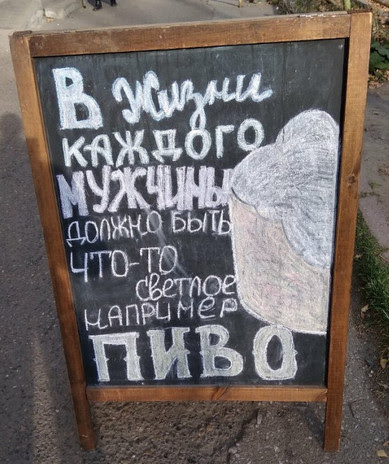 В жизни
КАЖДОГО
МУЖЧИНЫ
ДОЛЖНО БЫТЬ
ЧТО-ТО
СВЕТЛОЕ
НАПРИМЕР
ПИВО